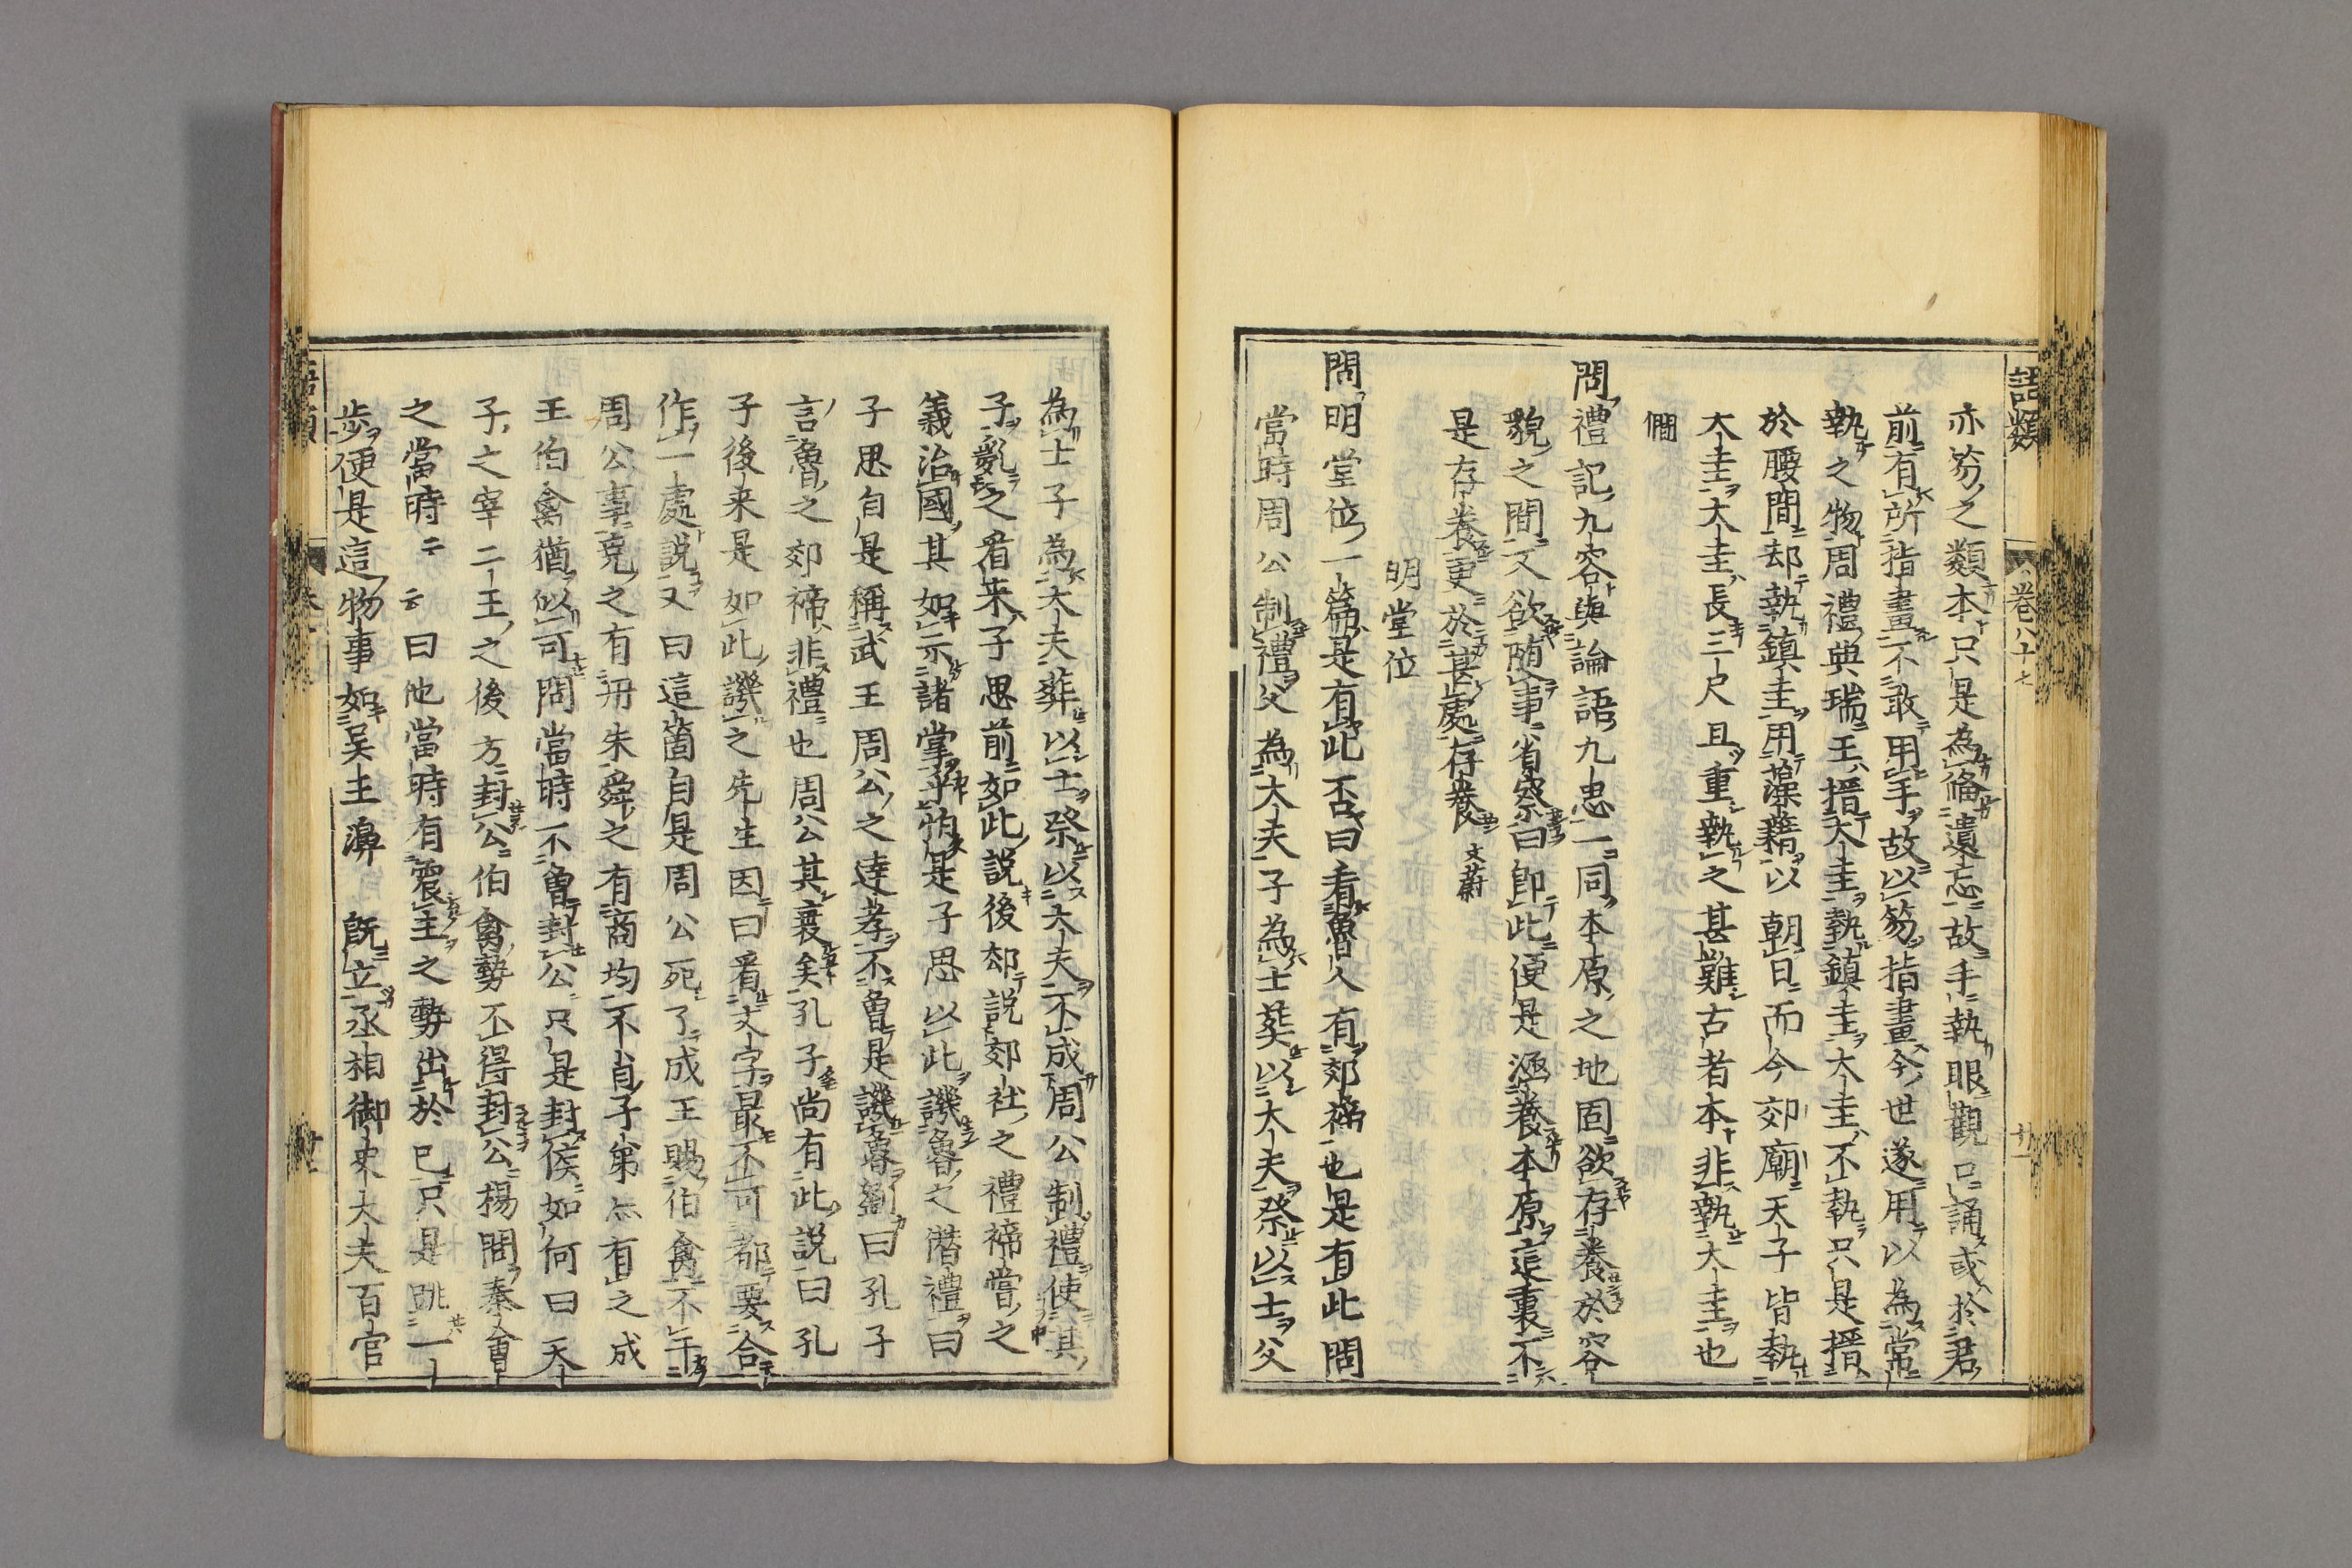 語類
卷八十七
廿一
亦笏之類本只是為備遺忘故手執眼觀口誦或於君
前有所指畫不敢用手故以笏指畫今世遂用以為常
執之物周禮典瑞王搢大圭執鎮圭大圭不執只是搢
於腰間却執鎮圭用藻藉以朝日而今郊廟天子皆執
大圭大圭長三尺且重執之甚難古者本非執大圭也
僩
問禮記九容與論語九思一同本原之地固欲存養於容
貌之間又欲隨事省察曰即此便是涵養本原這裏不
是存養更於甚處存養 文蔚
明堂位
問明堂位一篇是有此否曰看魯人有郊禘也是有此問
當時周公制禮父為大夫子為士葬以大夫祭以士父
為士子為大夫葬以士祭以大夫不成周公制禮使其
子亂之看来子思前如此說後却説郊社之禮禘嘗之
義治國其如示諸掌乎怕是子思以此譏魯之僭禮曰
子思自是稱武王周公之達孝不曾是譏魯劉曰孔子
言魯之郊禘非禮也周公其衰矣孔子尚有此說曰孔
子後来是如此譏之先生因曰看文字最不可都要合
作一處説又曰這箇自是周公死了成王賜伯禽不干
周公事堯之有丹朱舜之有商均不肖子弟亦有之成
王伯禽猶似可問當時不曾封公只是封侯如何曰天
子之宰二王之後方封公伯禽勢不得封公楊問秦會
之當時云云曰他當時有震主之勢出於已只是跳一
步便是這物事如吳王濞 既立丞相御史大夫百官